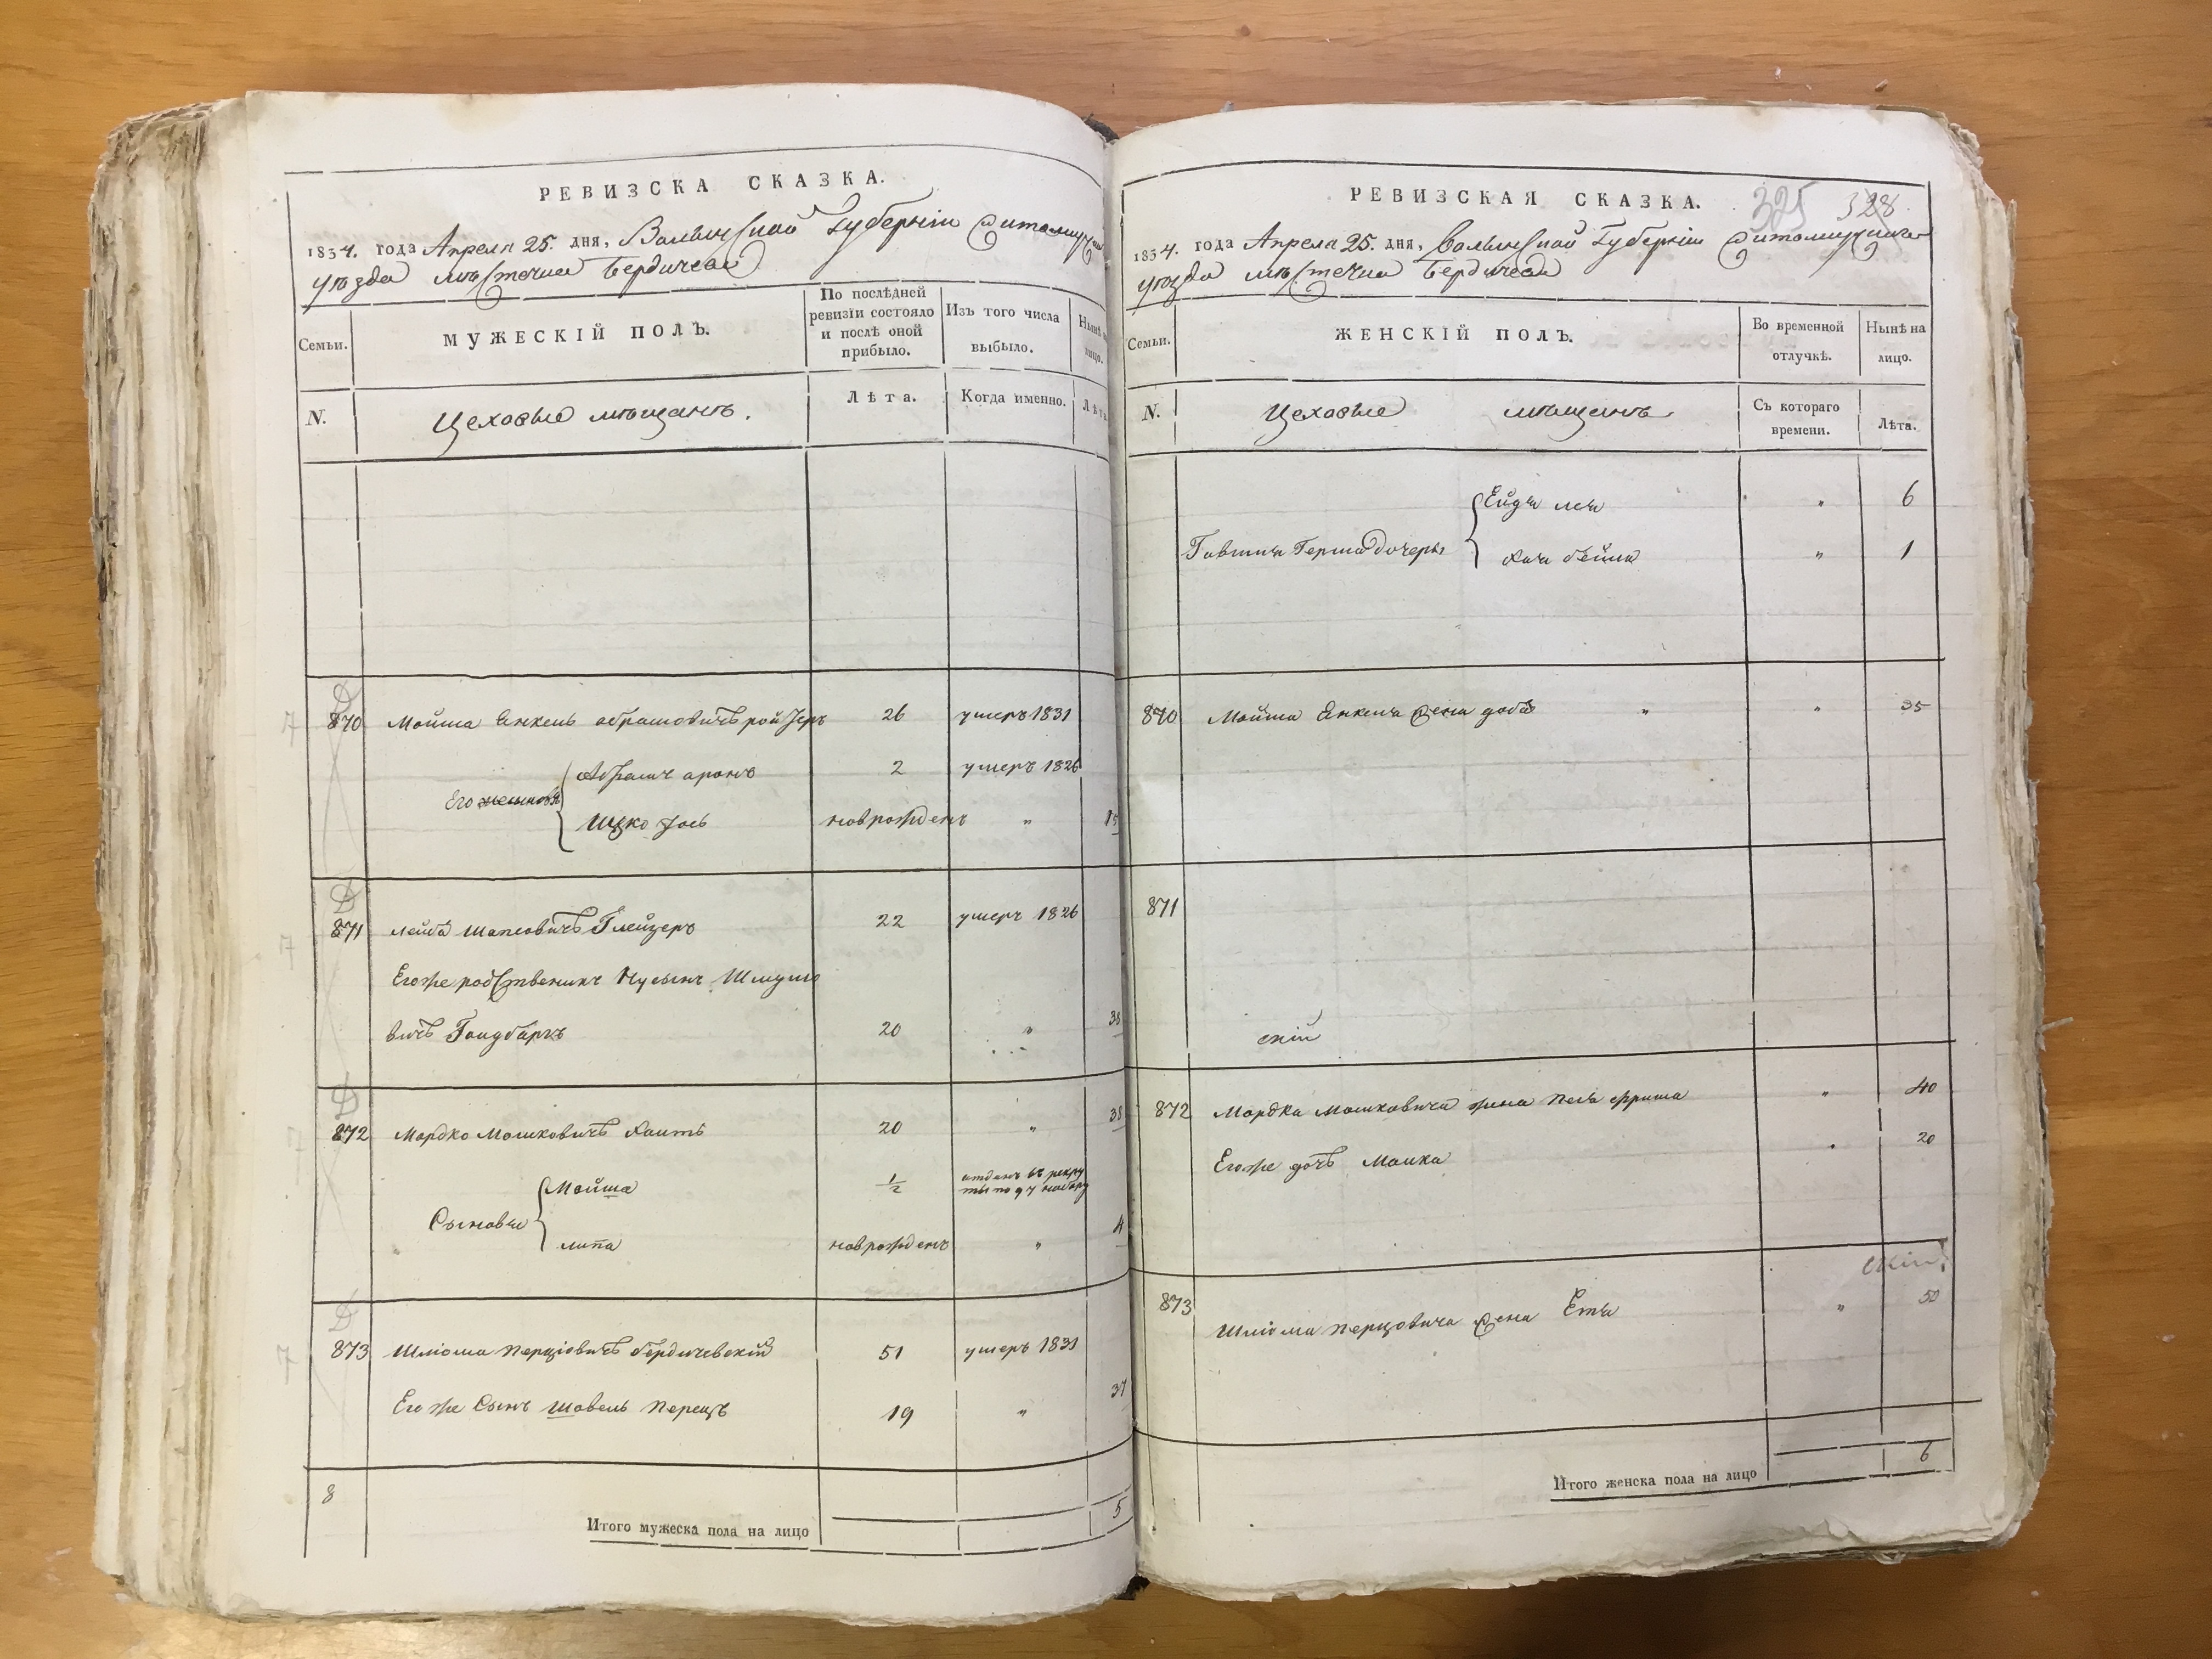 РЕВИЗСКА СКАЗКА.
1834. года Апреля 25. дня, Волынской Губернiи Житомирскаго
уѣзда мѣстечка Бердичева
Семьи.
МУЖЕСКIЙ ПОЛЪ.
По послѣдней
ревизiи состояло
и послѣ оной
прибыло.
Изъ того числа
выбыло.
Нынѣ на
лицо.
N.
Цеховые мѣщанъ.
Лѣта.
Когда именно.
Лѣта
870 Мойша Янкель абрамовичъ 26 умеръ 1831
Абрамъ аронъ 2 умеръ 1826
Его сыновья
Ицко Iось новрожденъ " 15
871 лейба Шапсовичъ Глейзеръ 22 умеръ 1826
Егоже родственикъ Нусынъ Шмулио
вичъ 20 " 38
872 Мордко Мошковичъ Хаитъ 20 " 38
Мойша 1/2 отданъ въ рекру
ты по 94 набору
Сыновья
липа новрожденъ " 4
873 Шлiома перцiовичъ бердичевскiй 51 умеръ 1831
Егоже Сынъ Шовель перецъ 19 " 37
8
Итого мужеска пола на лицо 5
РЕВИЗСКАЯ СКАЗКА.
325 328
1834. года Апреля 25. дня, Волынской Губернiи Житомирскаго
уѣзда мѣстечка Бердичева
Семьи.
ЖЕНСКIЙ ПОЛЪ.
Во временной
отлучкѣ.
Нынѣ на
лицо.
N.
Цеховые мѣщанъ
Съ котораго
времени.
Лѣта.
Ейдя лея " 6
Герша дочеры
Хая бейла " 1
870 Мойша Янкеля жена доба " " 35
871
скiй
872 Мордка Мошковича жена песя фрима " 40
Егоже дочь Малка " 20
873
Шлiома перцовича жена Етя " 50
Итого женска пола на лицо 6